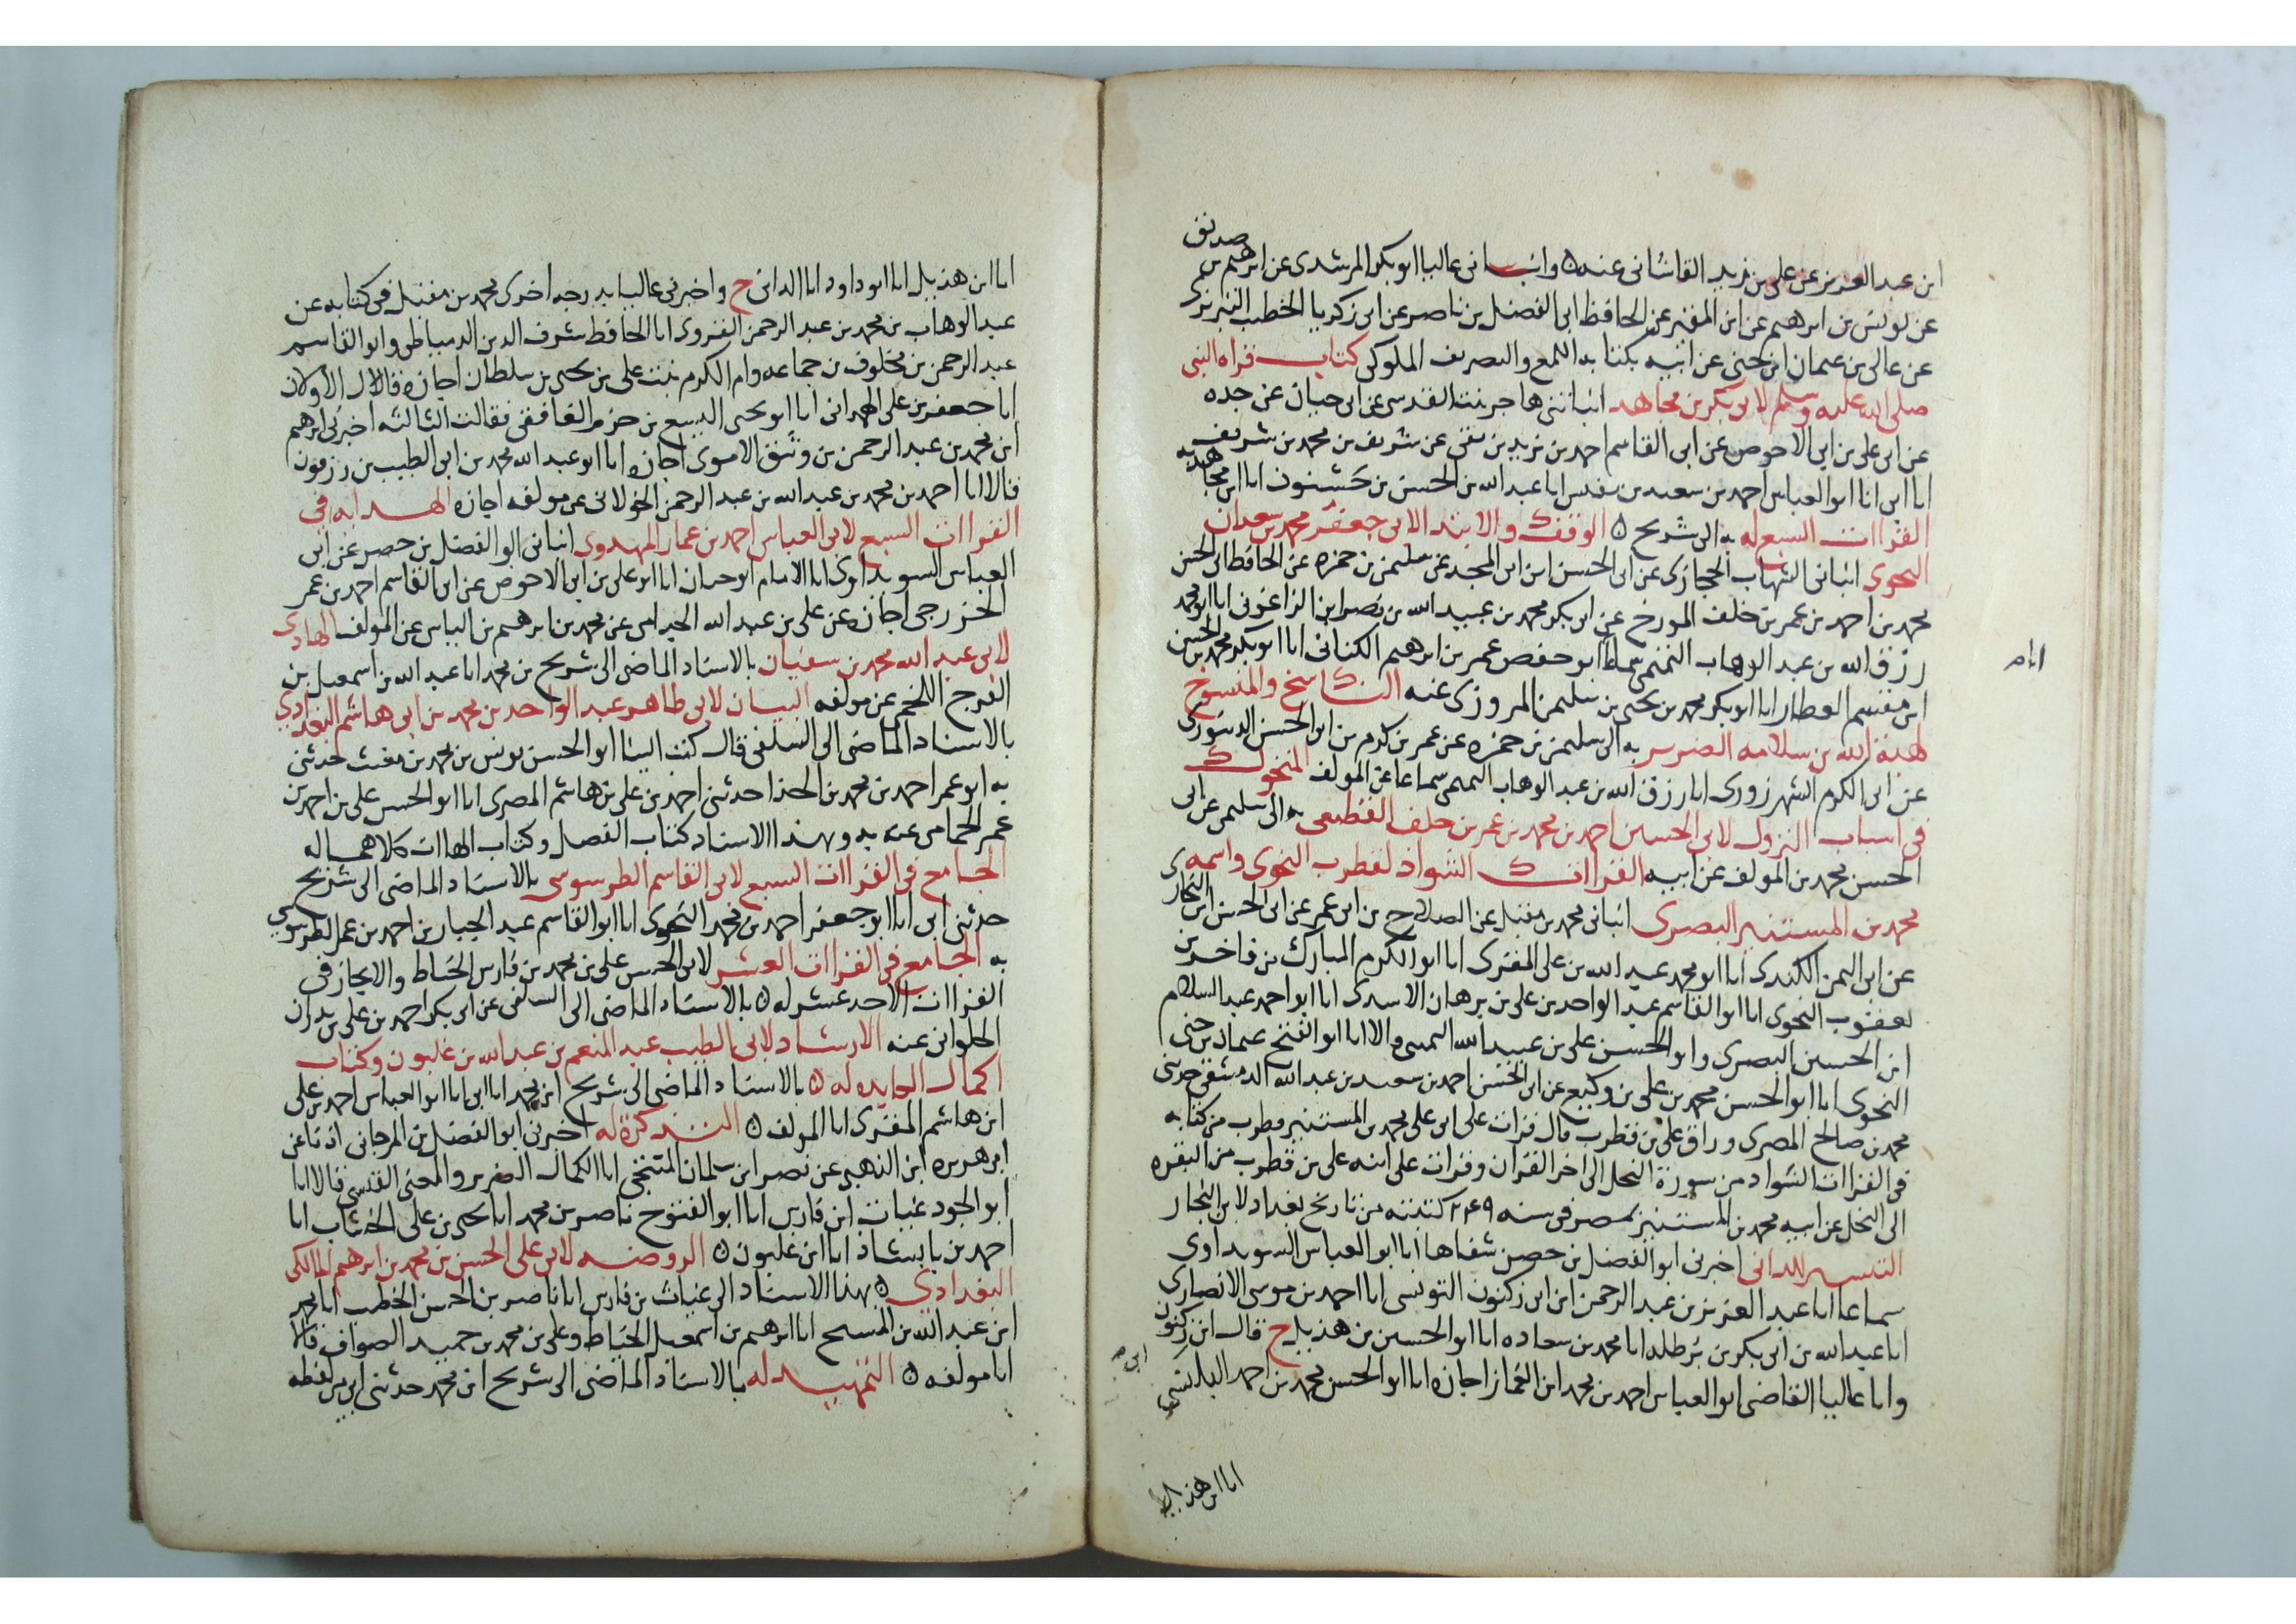 صديق
ابن عبد العزيز عن على بن زيد القاشانى عنه ه وانبـانى عاليا ابو بكر المرشدى عن ابرهيم بن
عن يونس بن ابرهيم عن ابن المقير عن الحافظ ابى الفضل بن ناصر عن ابى زكريا الخطيب التبريزى
عن عالى بن عثمان ابن جنى عن ابيه بكتابه اللمع والتصريف الملوكى كتاب قراه النبى
صلى الله عليه وسلم لابى بكر بن مجاهد انباتنى هاجر بنت القدسى عن ابى حيان عن جده
عن ابى على بن ابى الاحوص عن ابى القاسم احمد بن يزيد بن بقى عن شريف بن محمد بن شريف
انا ابى انا ابو العباس احمد بن سعيد بن نفيس انا عبد الله بن الحسين بن حسنون انا ابن مجاهد به
القراات السبع له به الى شريح ه الوقف والابتدا لابى جعفر محمد بن سعدان
النحوى انبانى الشهاب الحجازى عن ابى الحسن ابن ابى المجد عن سليمن بن حمزه عن الحافظ ابى الحسن
محمد بن احمد بن عمر بن خلف المورخ عن ابى بكر محمد بن عبيد الله بن نصر ابن الزاغونى انا ابو محمد
رزق الله بن عبد الوهاب التميمى سماعا انا ابو حفص عمر بن ابرهيم الكنانى انا ابو بكر محمد بن الحسن
ابن مقسم العطار انا ابو بكر محمد بن يحيى بن سليمن المروزى عنه الناسخ والمنسوخ
لهبة الله بن سلامه الضرير به الى سليمن بن حمزه عن عمر بن كرم بن ابو الحسن الدينورى
عن ابى الكرم الشهرزورى انا رزق الله بن عبد الوهاب التميمى سماعا عن المولف
فى اسباب النزول لابى الحسين احمد بن محمد بن عمر بن خلف القطيعى به الى سليمن عن ابى
الحسن محمد بن المولف عن ابيه القراات الشواذ لقطرب النحوى واسمه
محمد بن المستنير البصرى انبانى محمد بن مقبل عن الصلاح بن ابى عمر عن ابى الحسن ابن النجار
عن ابى اليمن الكندى انا ابو محمد عبد الله بن على المقرى انا ابو الكرم المبارك بن فاخر بن
يعقوب النحوى انا ابو القاسم عبد الواحد بن على بن برهان الاسدى انا ابو احمد عبد السلام
ابن الحسين البصرى وابو الحسن على بن عبيد الله السمسى قالا انا ابو الفتح عثمان بن جنى
النحوى انا ابو الحسن محمد بن على بن وكيع عن ابى الحسن احمد بن سعيد بن عبد الله الدمشقى حدثنى
محمد بن صالح المصرى وراق على بن قطرب قال قرات على ابى على محمد بن المستنير قطرب من كتابه
فى القراات الشواذ من سورة النحل الى اخر القران وقرات على ابنه على بن قطرب من البقره
الى النحل عن ابيه محمد بن المستنير بمصر فى سنه ٢٤٩ كتبته من تاريخ بغداد لابن النجار
التيسير للدانى اخبرنى ابو الفضل بن حصن شفاها انا ابو العباس السويداوى
سماعا انا عبد العزيز بن عبد الرحمن ابن ابى زكنون التونسى انا احمد بن موسى الانصارى
انا عبد الله بن ابى بكر بن برطله انا محمد بن سعاده انا ابو الحسين بن هذيل ح قال ابن زكنون
وانا عاليا القاضى ابو العباس احمد بن محمد ابن الغماز اجازه انا ابو الحسن محمد بن احمد البلنسى
انا ابن هذيل
انا ابن هذيل انا ابو داود انا الدانى ح واخبرنى عاليا بدرجه اخرى محمد بن مقبل فى كتابه عن
عبد الوهاب بن محمد بن عبد الرحمن القروى انا الحافظ شرف الدين الدمياطى وابو القاسم
عبد الرحمن بن مخلوف بن جماعه وام الكرم بنت على بن يحيى بن سلطان اجازه قالا الاولان
انا جعفر بن على الهمدانى انا ابو يحيى اليسع بن حزم الغافقى فقالت الثالثه اخبرنى ابرهيم
ابن محمد بن عبد الرحمن بن وثيق الاموى اجازه انا ابو عبد الله محمد بن ابى الطيب بن زرقون
قالا انا احمد بن محمد بن عبد الله بن عبد الرحمن الخولانى عن مولفه اجازه الهدايه فى
القراات السبع لابى العباس احمد بن عمار المهدوى انبانى ابو الفضل بن حصن عن ابى
العباس السويداوى انا الامام ابو حيان انا ابو على بن ابى الاحوص عن ابى القاسم احمد بن عمر
الخزرجى اجازه عن على بن عبد الله الجذامى عن محمد بن ابرهيم بن الياس عن المولف الهادى
لابى عبد الله محمد بن سفيان بالاسناد الماضى الى شريح بن محمد انا عبد الله بن اسمعيل بن
الفرج اللخمى عن مولفه البيان لابى طاهر عبد الواحد بن محمد بن ابى هاشم البغدادى
بالاسناد الماضى الى السلفى قال كتب الينا ابو الحسن يونس بن محمد بن مغيث حدثنى
به ابو عمر احمد بن محمد بن الحذا حدثنى احمد بن على بن هاشم المصرى انا ابو الحسن على بن احمد بن
عمر الحمامى عنه به وبهذا الاسناد كتاب الفصل وكتاب الهاات كلاهما له
الجامع فى القراات السبع لابى القاسم الطرسوسى بالاسناد الماضى الى شريح
حدثنى ابى انا ابو جعفر احمد بن محمد النحوى انا ابو القاسم عبد الجبار بن احمد بن عمر الطرسوسى
به الجامع فى القراات العشر لابى الحسن على بن محمد بن فارس الخياط والايجاز فى
القراات الاحد عشر له ه بالاسناد الماضى الى السلفى عن ابى بكر احمد بن على بن بدران
الحلوانى عنه الارشاد لابى الطيب عبد المنعم بن عبد الله بن غلبون وكتاب
اكمال الفايده له ه بالاسناد الماضى الى شريح ابن محمد انا ابى انا ابو العباس احمد بن على
ابن هاشم المقرى انا المولف ه التذكرة له اخبرنى ابو الفضل بن المرجانى اذنا عن
ابى هريره ابن الذهبى عن نصر ابن سلمان المنبجى انا الكمال الضرير والمعين القدسى قالا انا
ابو الجود غياث ابن فارس انا ابو الفتوح ناصر بن محمد انا يحيى بن على الخشاب انا
احمد بن بابشاذ انا ابن غلبون ه الروضه لابى على الحسن بن محمد بن ابرهيم المالكى
البغدادى ه بهذا الاسناد الى غياث بن فارس انا ناصر بن الحسن الخطيب انا محمد
ابن عبد الله بن المسبح انا ابرهيم بن اسمعيل الخياط وعلى بن محمد بن حميد الصواف قالا
انا مولفه ه التمهيد له بالاسناد الماضى الى شريح ابن محمد حدثنى ابى من لفظه